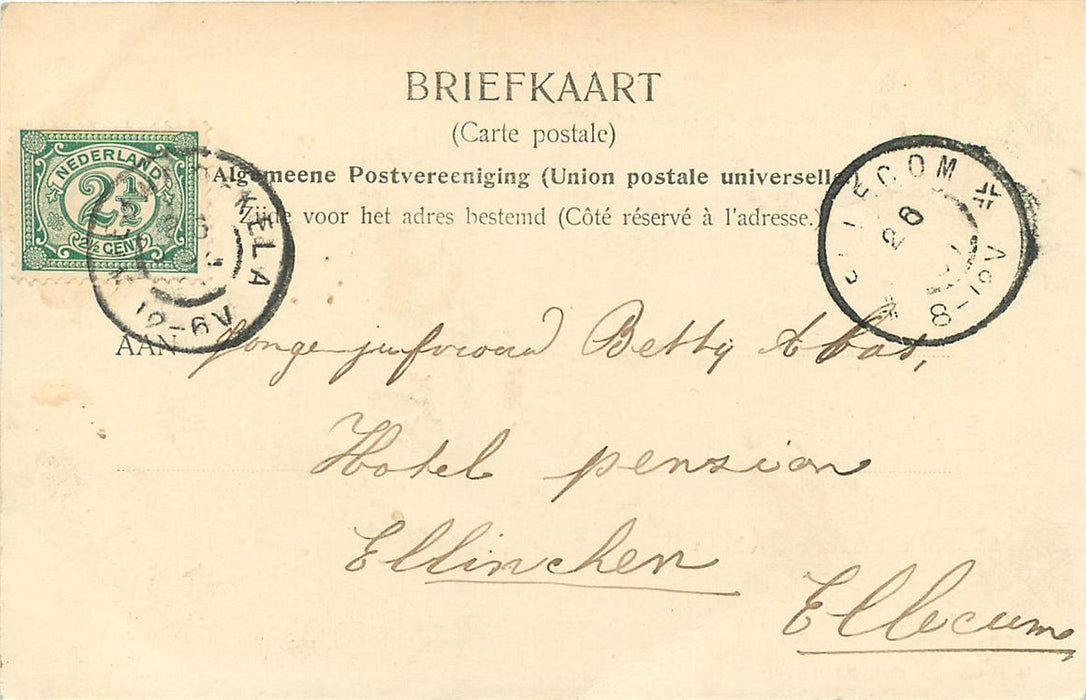 BRIEFKAART
(Carte postale)
Algemeene Postvereeniging (Union postale universelle
Zijde voor het adres bestemd (Côté réservé à l'adresse.)
NEDERLAND
2½
2½ CENT
ELLECOM
26
8-9V
9-12V
AAN Jonge jufvrouw Betty Abas,
Hotel penzion
Ellinchem
Ellecum